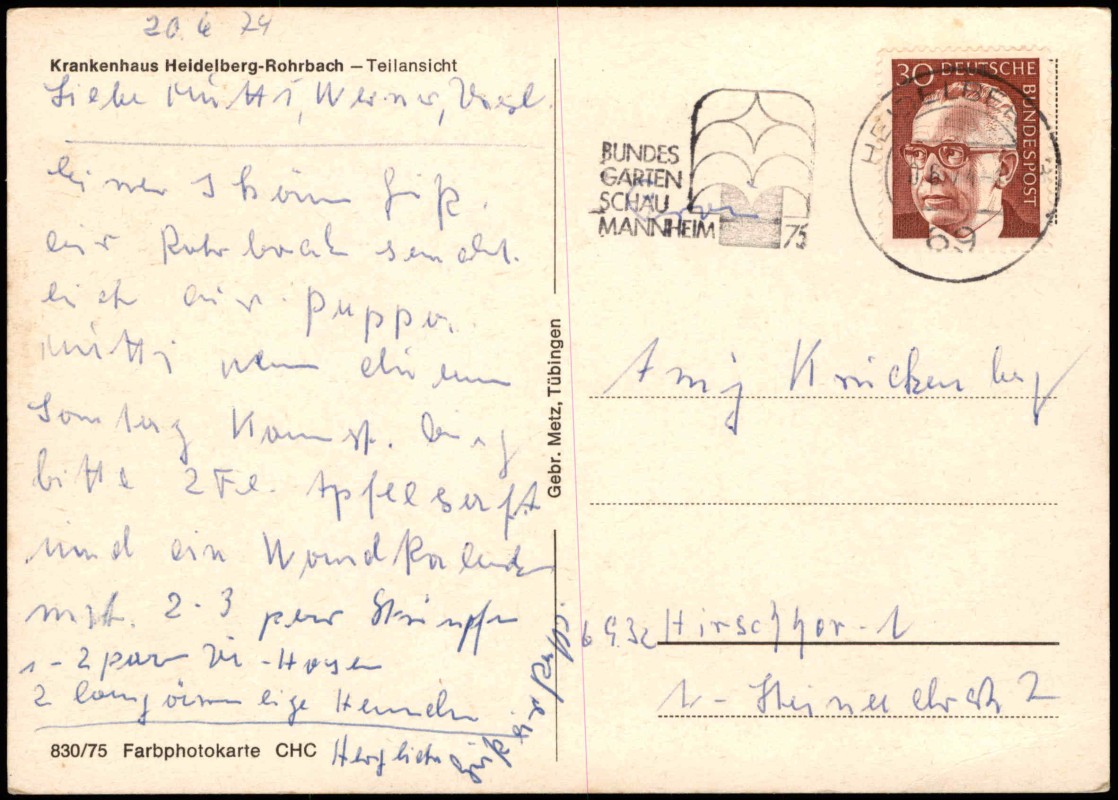 20. 6 74
Krankenhaus Heidelberg-Rohrbach – Teilansicht
Liebe Mutti, Werner,
einen schön Gruß
aus Rohrbach sendet
euch eur. Puppa.
Mutti wenn du am
Sontag Komst. bring
bitte 2 Fl. Apfelsaft
und ein Wandkalender
mit. 2-3 paar Strümpfe
1-2 paar -Hosen
2 langärmelige Hemden
Herzliche Grüße
830/75 Farbphotokarte CHC
Gebr. Metz, Tübingen
BUNDES
GARTEN
SCHAU
MANNHEIM 75
HEIDELBERG
69
30 DEUTSCHE
BUNDESPOST
Krückenberg
6932 Hirschhor-1
2